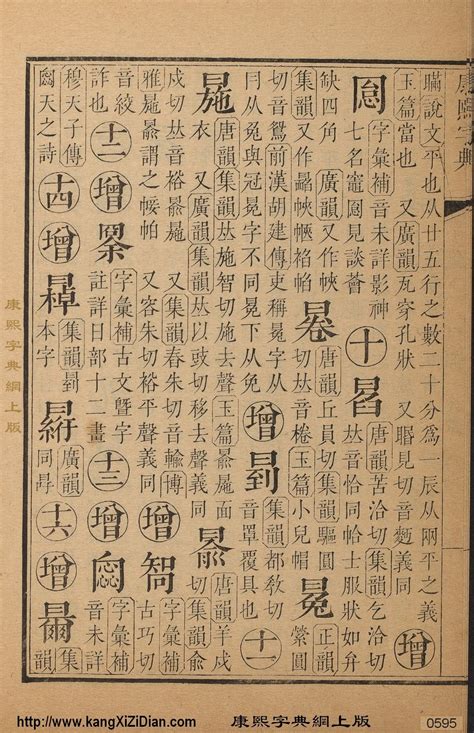 康熙字典
瞞說文平也从廿五行之數二十分爲一辰从㒼平之義
玉篇當也 又廣韻瓦穿孔狀 見切音麪義同 增
字彙補音未詳影神 十 唐韻苦洽切集韻乞洽切
七名竈 見談薈 音恰同帢士服狀如弁
缺四角 廣韻又作帢 唐韻丘員切集韻驅圓 正韻
集韻又作 切音棬玉篇小兒 縈圓
切音鴦前漢胡建傳吏稱冤字 集韻都教切
从兔與冠冕字不同冕下从免 增 音罩覆具也 十一
唐韻集韻 施智切施去聲玉篇 面
衣 又廣韻 以豉切移去聲義同 唐韻羊戍切集韻俞
戍切 音裕 又集韻春朱切音輸博
雅 謂之 帕 又容朱切裕平聲義同 增 古巧切 字彙補
音絞 十二 增 字彙補古文曁字 十三 增 字彙補
詐也 註詳日部十二畫 音未詳
穆天子傳 十四 增 集韻 本字 廣韻 同 十六 增 集韻
天之詩
康熙字典網上版
http://www.kangXiZiDian.com 康熙字典網上版 0595